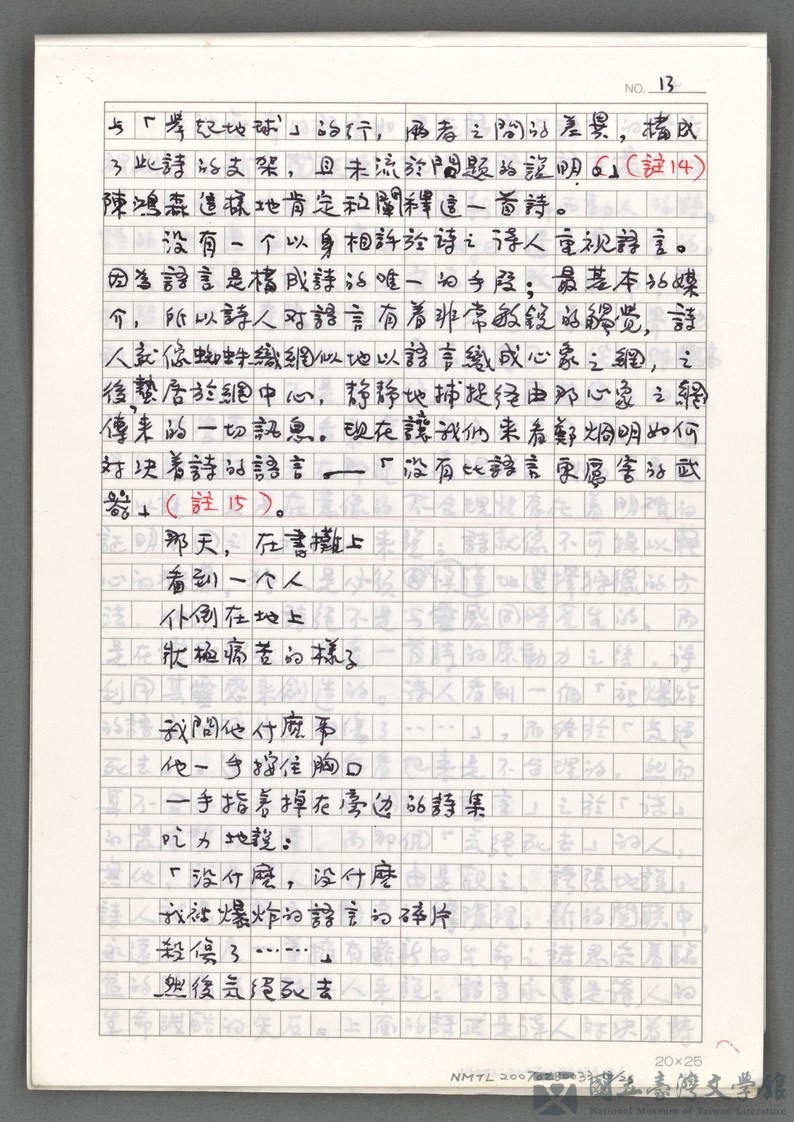 NO. 13
与「举起地球」的行，兩者之間的差異，構成
了此詩的支架，且未流於問題的說明。」（註14）
陳鴻森這樣地肯定和闡釋這一首詩。
没有一个以身相許於詩之詩人重視語言。
因為語言是構成詩的唯一的手段；最基本的媒
介，所以詩人对語言有着非常敏銳的觸覺，詩
人就像蜘蛛織網似地以語言織成心象之網，之
後，蟄居於網中心，静静地捕捉經由那心象之網
傳来的一切訊息。現在讓我们来看鄭烱明如何
对决着詩的語言——「没有比語言更厲害的武
器」（註15）。
那天，在書攤上
看到一个人
仆倒在地上
狀極痛苦的様子
我問他什麽事
他一手按住胸口
一手指着掉在旁边的詩集
吃力地說：
「没什麽，没什麽
我被爆炸的語言的碎片
殺傷了……」
然後気絕死去
20×25
NMTL 20070280033
國立臺灣文學館
National Museum of Taiwan Literature